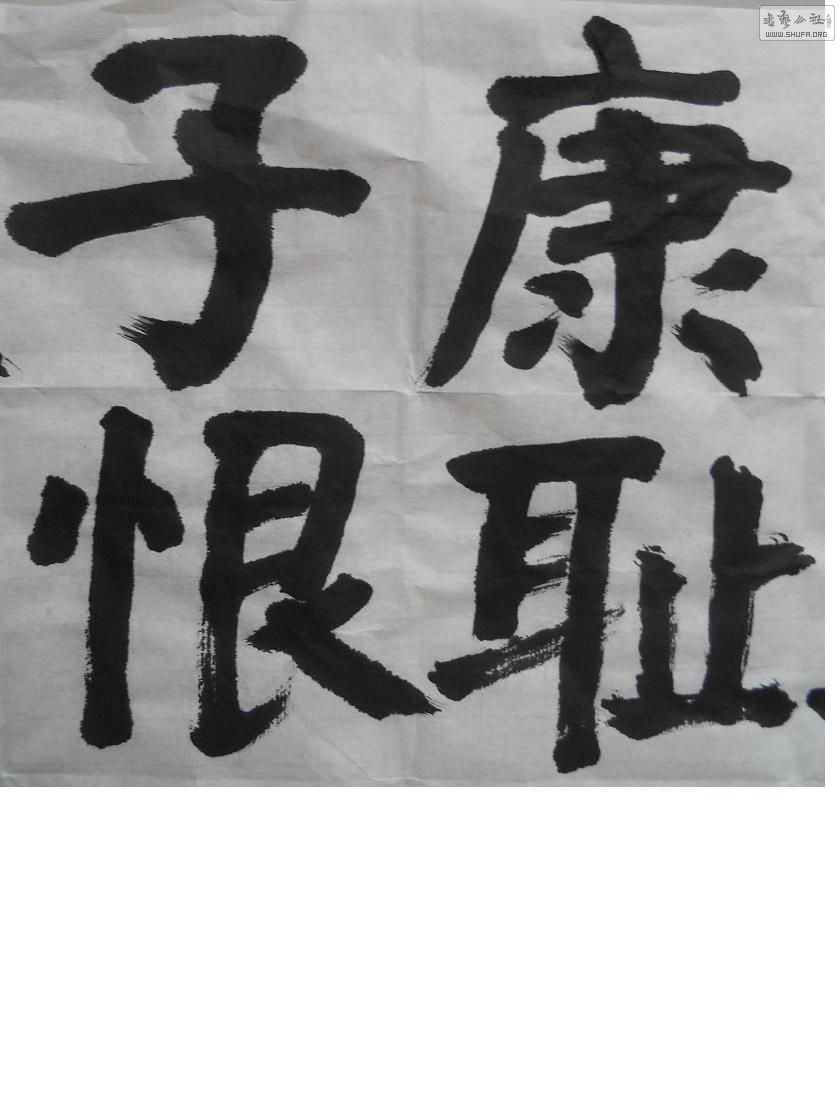 康耻
子恨
书艺公社
WWW.SHUFA.ORG